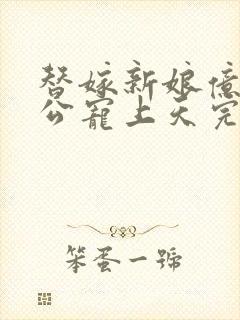 替嫁新娘億
公寵上天完
笨蛋一號